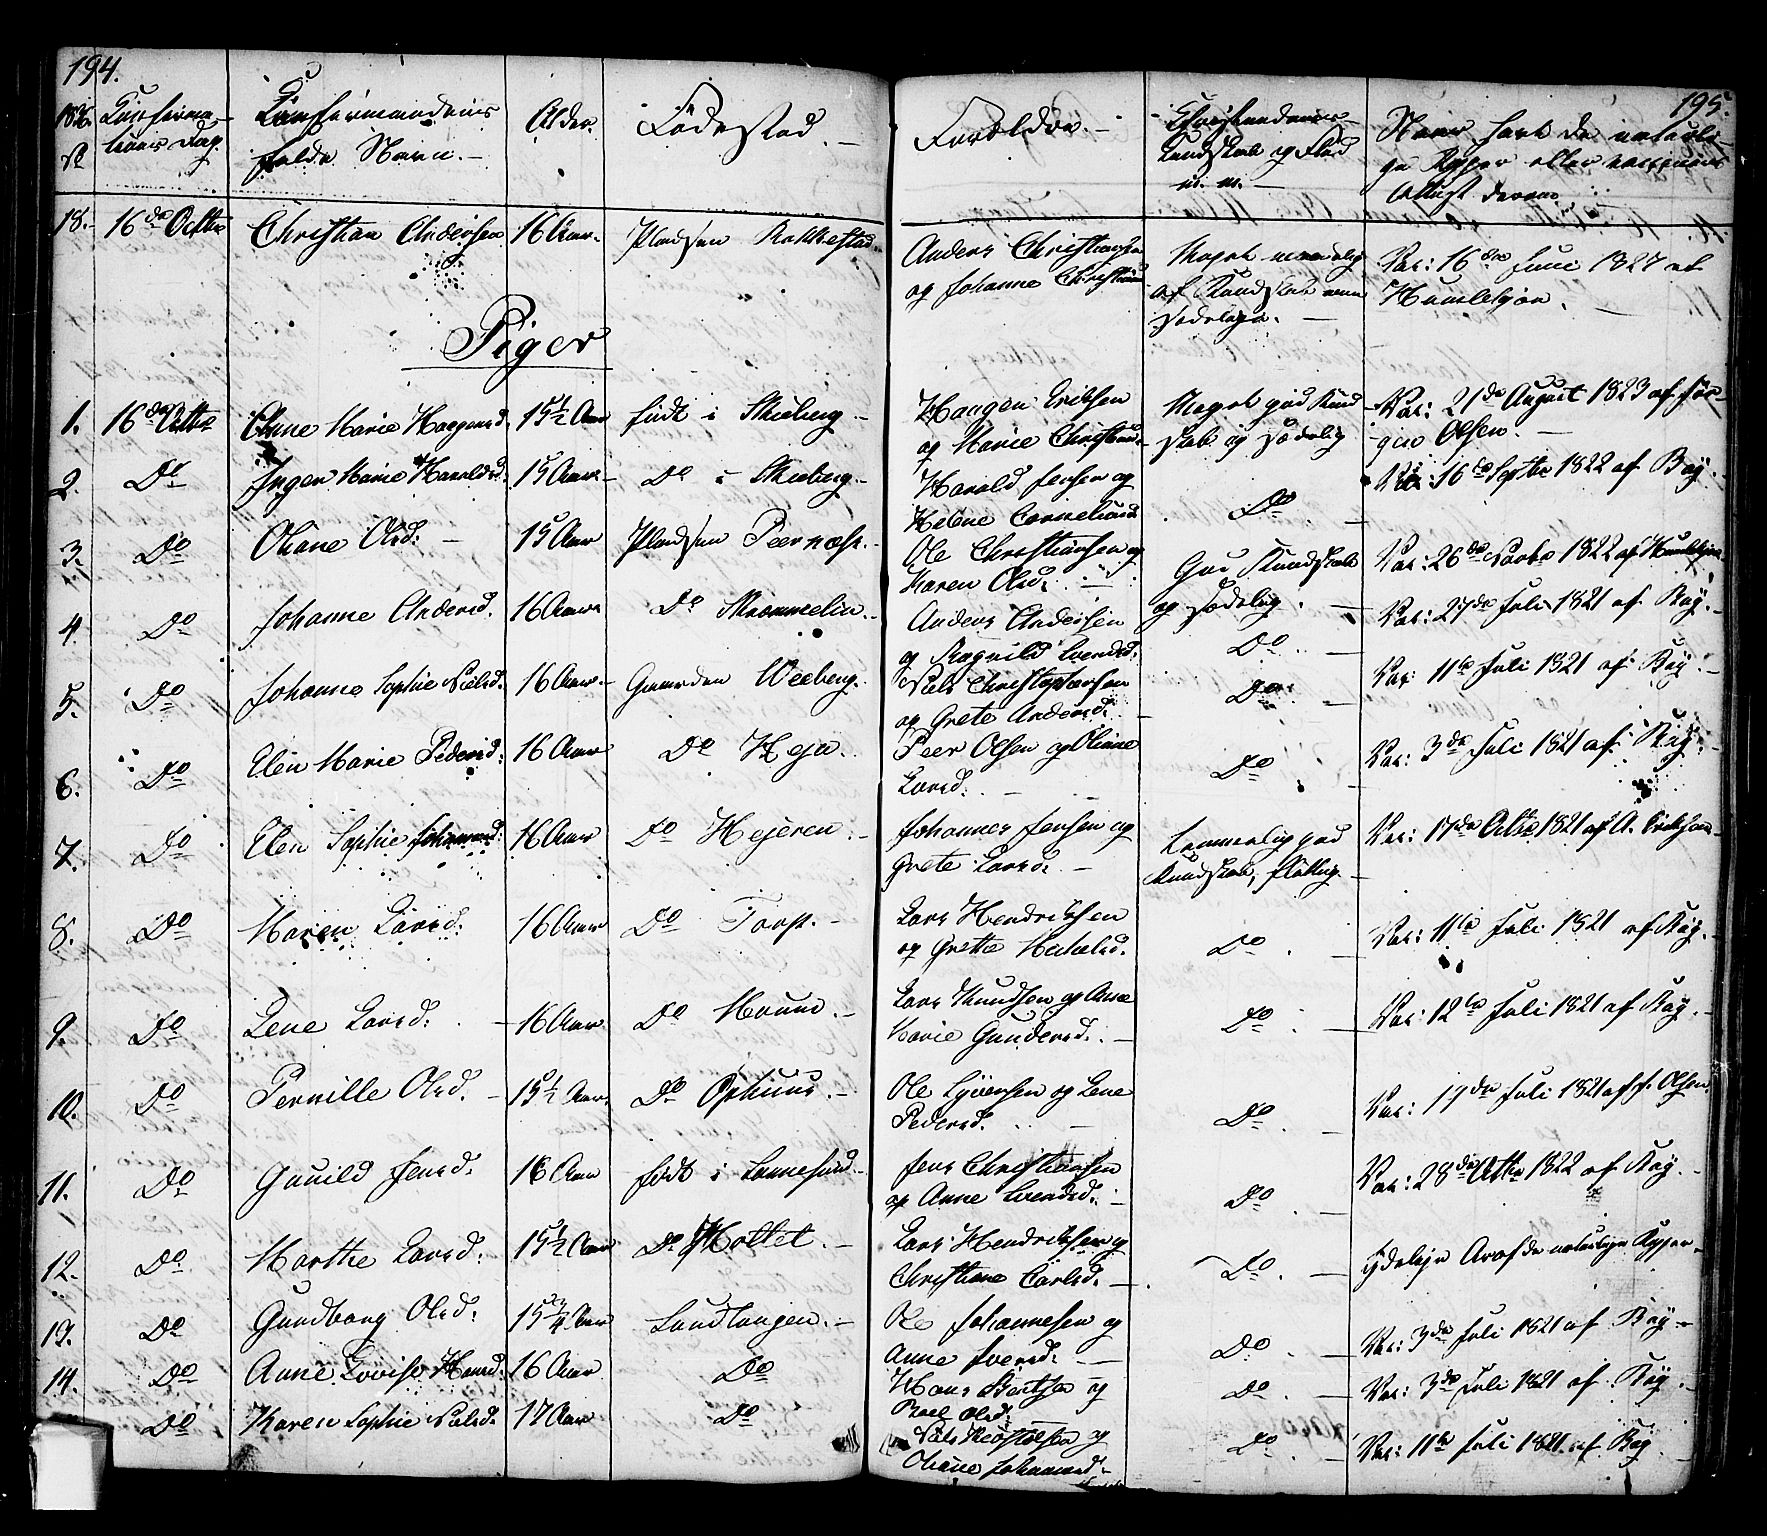 194.
Confirma-
tions Dag.
Confirmandens
fulde Navn. -
Alder.
Födestad. -
Forældre. -
195.
Christendoms
Kundskab og Flid
m. m. -
Naar havt de naturli-
ge Kopper eller vaccineret
Attest derom.
18. 16de Octbr Christian Andersen 16 Aar. Pladsen Rakkestad
Anders Christiansen og Johanne Christians
Meget maadelig af Kundskab men sædelig. -
Vac: 16de Juni 1827 af Humlekjær. -
Piger
1. 16de Octbr Anne Marie Haagensd. 15½ Aar født i Skieberg. -
Haagen Eriksen og Marie Christians.
Meget god Kundskab og sædelig
Vac: 21de August 1823 af Jörgen Olsen. -
2. Do Inger Marie Haraldsd. 15 Aar. - Do i Skieberg. -
Harald Jensen og Helene Corneliusd
Do -
Vac: 16de Septbr 1822 af Bøy. -
3. Do Oliane Olsd: - 15 Aar Pladsen Peernæs. -
Ole Christiansen og Karen Olsd. -
God Kundskab og sædelig. -
Vac: 26de Novbr 1822 af Humlekjær
4. Do Johanne Andersd. 16 Aar Do
Anders Andersen og Ragnild Svendsd.
Do -
Vac: 27de Juli 1821 af Bøy. -
5. Do Johanne Sophie Nielsd. 16 Aar. - Gaarden Weeberg.
Niels Christophersen og Grete Andersd. -
Do. -
Vac: 11te Juli 1821 af Bøy. -
6. Do Elen Marie Pedersd. 16 Aar Do Heja. -
Peer Olsen og Oliane Larsd. -
Do
Vac: 3de Juli 1821 af Bøy. -
7. Do Elen Sophie Johannesd: 16 Aar Do Hejeren. -
Johannes Jensen og Grete Larsd. -
Temmelig god Kundskab, flittig. -
Vac: 17de Octbr 1821 af A. Eriksen -
8. Do Maren Larsd. 16 Aar Do Torp. -
Lars Hendriksen og Grethe Michelsd.
Do. -
Vac: 11te Juli 1821 af Bøy. -
9. Do Lene Larsd. - 16 Aar Do Haum. -
Lars Knudsen og Anne Marie Gundersd. -
Do. -
Vac: 12te Juli 1821 af Bøy. -
10. Do Pernille Olsd. - 15½ Aar. Do Ophuus. -
Ole Syversen og Lene Pedersd. -
Do. -
Vac: 17de Juli 1821 af J. Olsen
11. Do Gunild Jensd. 16 Aar født i Tannesund. -
Jens Christiansen og Anne Svendsd. -
Do
Vac: 28de Octbr 1822 af Bøy. -
12. Do Marthe Larsd. 15½ Aar Do Holtet. -
Lars Hendriksen og Christiane Carlsd. -
Do. -
tydelige Ar af de naturlige Kopper -
13. Do Gundborg Olsd. 15¾ Aar Sundlougen. -
Ole Johannesen og Anne Iversd. -
Do. -
Vac: 3de Juli 1821 af Bøy -
14. Do Anne Lovise Hansd. 16 Aar Do
Hans Bentsen og Boel Olsd.
Do. -
Vac: 3de Juli 1821 af Bøy. -
Do Karen Sophie Nielsd. 17 Aar Do
Niels og Oliane Johannesd. -
Do. -
Vac: 11te Juli 1821 af Bøy